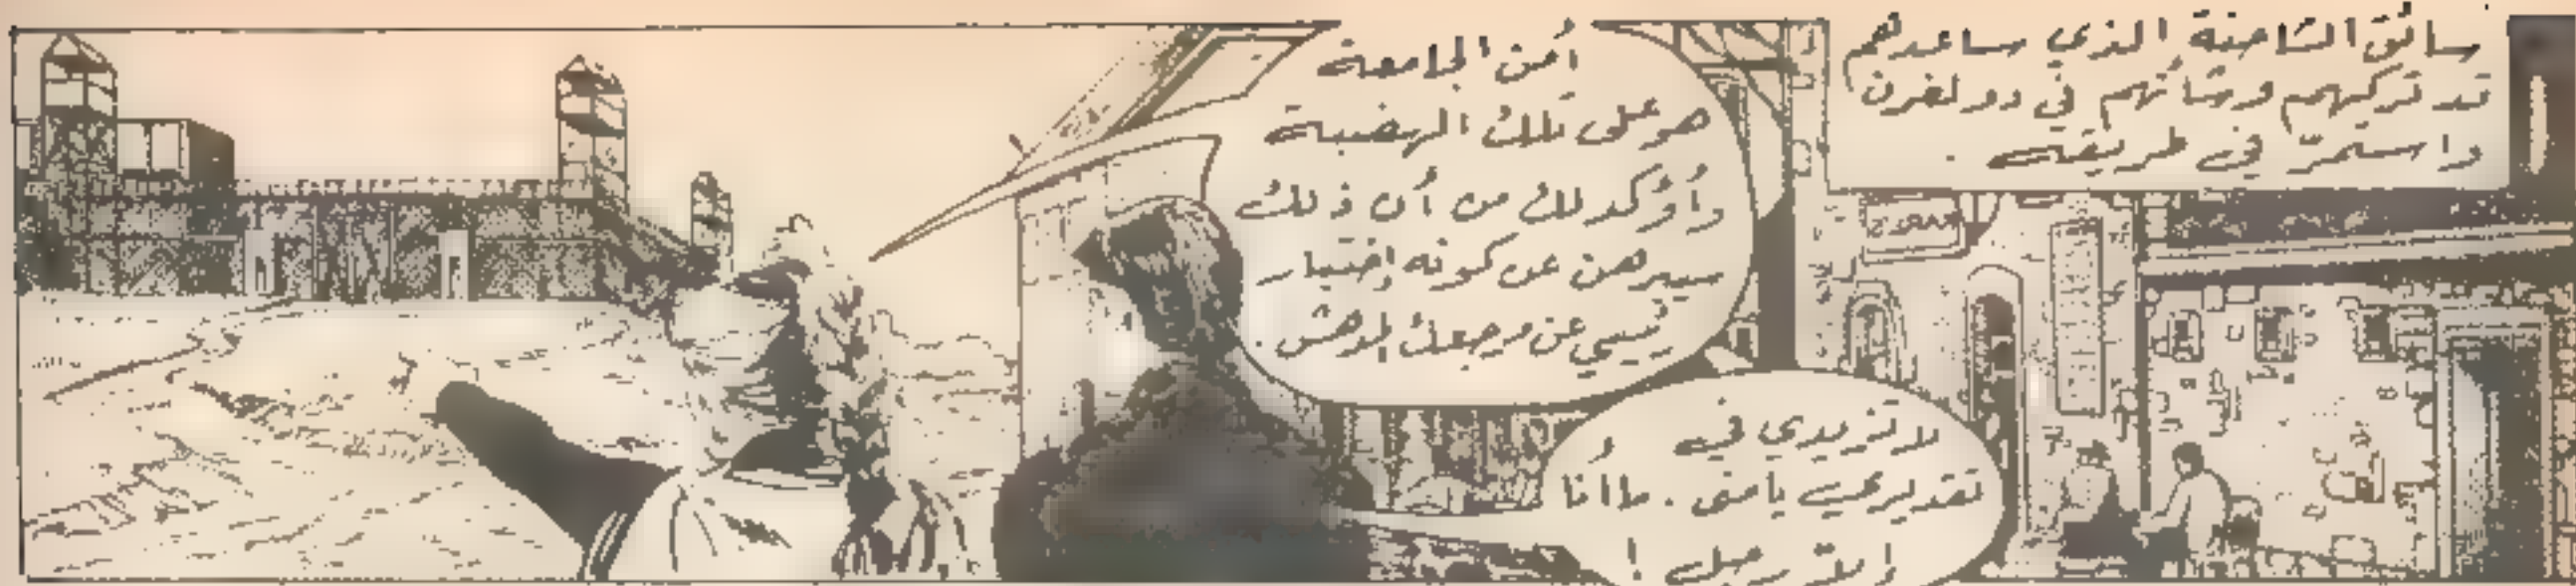 سائق الشاحنة الذي ساعدهم
قد تركهم وشأنهم في دولفرن
واستمرّ في طريقه .
أمن الجامعة
هو على تلك الهضبة
وأؤكد لك من أن ذلك
سيبرهن عن كونه إختبار
نفسي عن مرجعك المدهش .
لا تزيدي فيه
تقديرهي يا منى . ما أنا
إلا رجل !